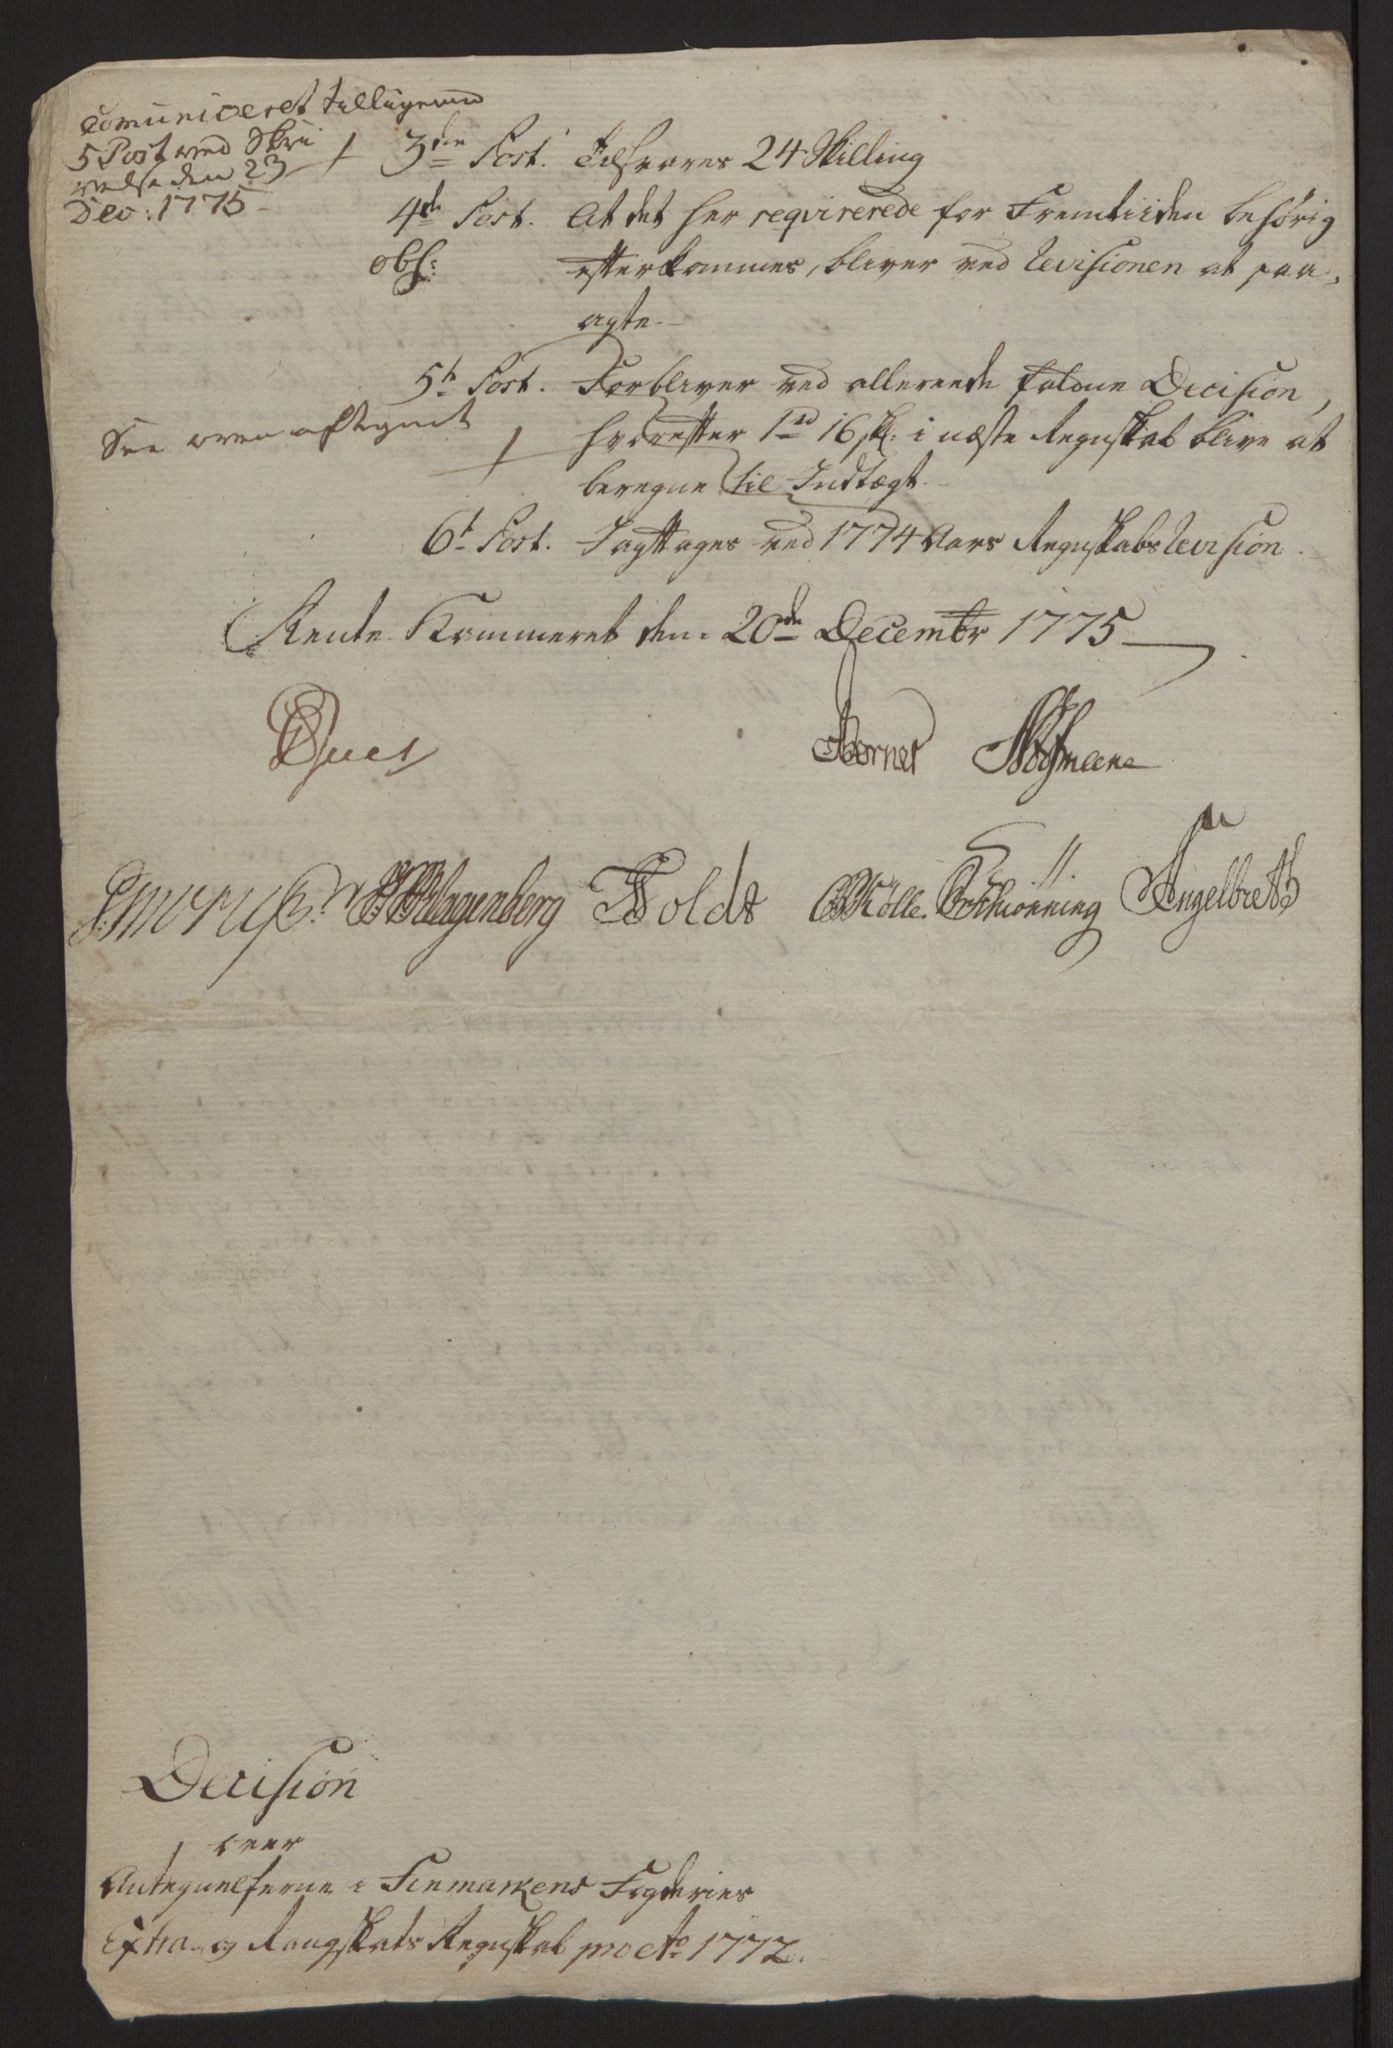 Comuniceret tillige med
5 Post ved Skri
velse den 23
Dec: 1775
3die Post. Tilsvares 24 Skilling
4de Post. At det her reqvirerede for Fremtiiden behørig
obs: efterkommes, bliver ved Revisionen at paa-
agte.
5t Post. Forbliver ved allereede faldne Decision,
See oven aftegnet
hvorefter 1 rd 16 sk: i næste Regnskab blive at
beregne til Indtægt.
6t Post. Iagttages ved 1774 Aars Regnskabs Revision.
Rente Kammeret den 20de Decembr 1775
Kørner
Klagenberg Holdt Møller Schiønning Engelbreth
Decision
over
Antegnelserne i Finmarkens Fogderies
Extra- og Rangskats Regnskab pro Ao 1772.